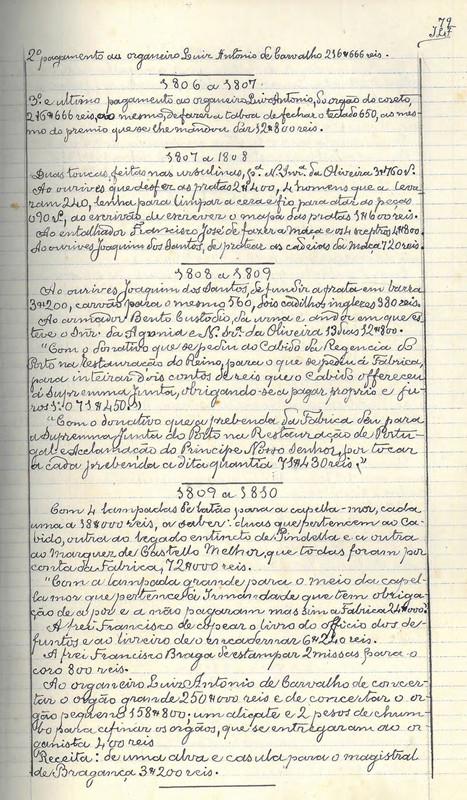 79
2º pagamento ao organeiro Luiz Antonio de Carvalho 216$666 reis.
1806 a 1807
3º e ultimo pagamento ao organeiro Luiz Antonio, do orgão do coreto,
216$666 reis, ao mesmo, de fazer a taboa de fechar o teclado 650, ao mes-
mo do premio que se lhe mandou dar 12$800 reis.
1807 a 1808
Duas toucas, feitas nas ursulinas, pª N. Snrª da Oliveira 3$760 rs.
Ao ourives que desfez as pratas 2$400, 4 homens que a leva-
ram 240, lenha para limpar a cera e fio para atar as peças
090 rs, ao escrivão de escrever o mapa das pratas 1$600 reis.
Ao entalhador Francisco José de fazer a maça e os 4 sceptros 4$800.
Ao ourives Joaquim dos Santos, de pratear as cadeias da maça 720 reis.
1808 a 1809
Ao ourives Joaquim dos Santos, de fundir a prata em barra
3$200, carvão para o mesmo 560, dois cadilhos inglezes 380 reis.
Ao armador Bento Custodio, da urna e andor em que es-
teve o Snr. da Agonia e N. Srª da Oliveira 13 dias 12$800.
"Com o donativo que se pediu ao Cabido da Regencia do
Porto na Restauração do Reino, para o que se pediu á Fabrica,
para inteirar dois contos de reis que o Cabido offereceu
á Supremma Junta, obrigando-se a pagar proprio e ju-
ros 1:071$450."
"Com o donativo que a prebenda da Fabrica deu para
a Supremma Junta do Porto na Restauração de Portu-
gal e Acclamação do Principe Nosso Senhor, por tocar
a cada prebenda a dita quantia 71$430 reis."
1809 a 1810
Com 4 lampadas de latão para a capella-mor, cada
uma a 18$000 reis, a saber: duas que pertencem ao Ca-
bido, outra ao legado extincto de Pindella e a outra
ao Marquez de Castello Melhor, que todas foram por
conta da Fabrica, 72$000 reis.
"Com a lampada grande para o meio da capel-
la mor que pertence á Irmandade que tem obriga-
ção de a por e a não pagaram mas sim a Fabrica 24$000."
A frei Francisco de copear o livro do officio dos de-
funtos e ao livreiro de o encadernar 6$240 reis.
A frei Francisco Braga de estampar 2 missas para o
coro 800 reis.
Ao organeiro Luiz Antonio de Carvalho de concer-
tar o orgão grande 250$000 reis e de concertar o or-
gão pequeno 158$800: um alicate e 2 pesos de chum-
bo para afinar os orgãos, que se entregaram ao or-
ganista 400 reis
Receita: de uma alva e casula para o magistral
de Bragança 3$200 reis.